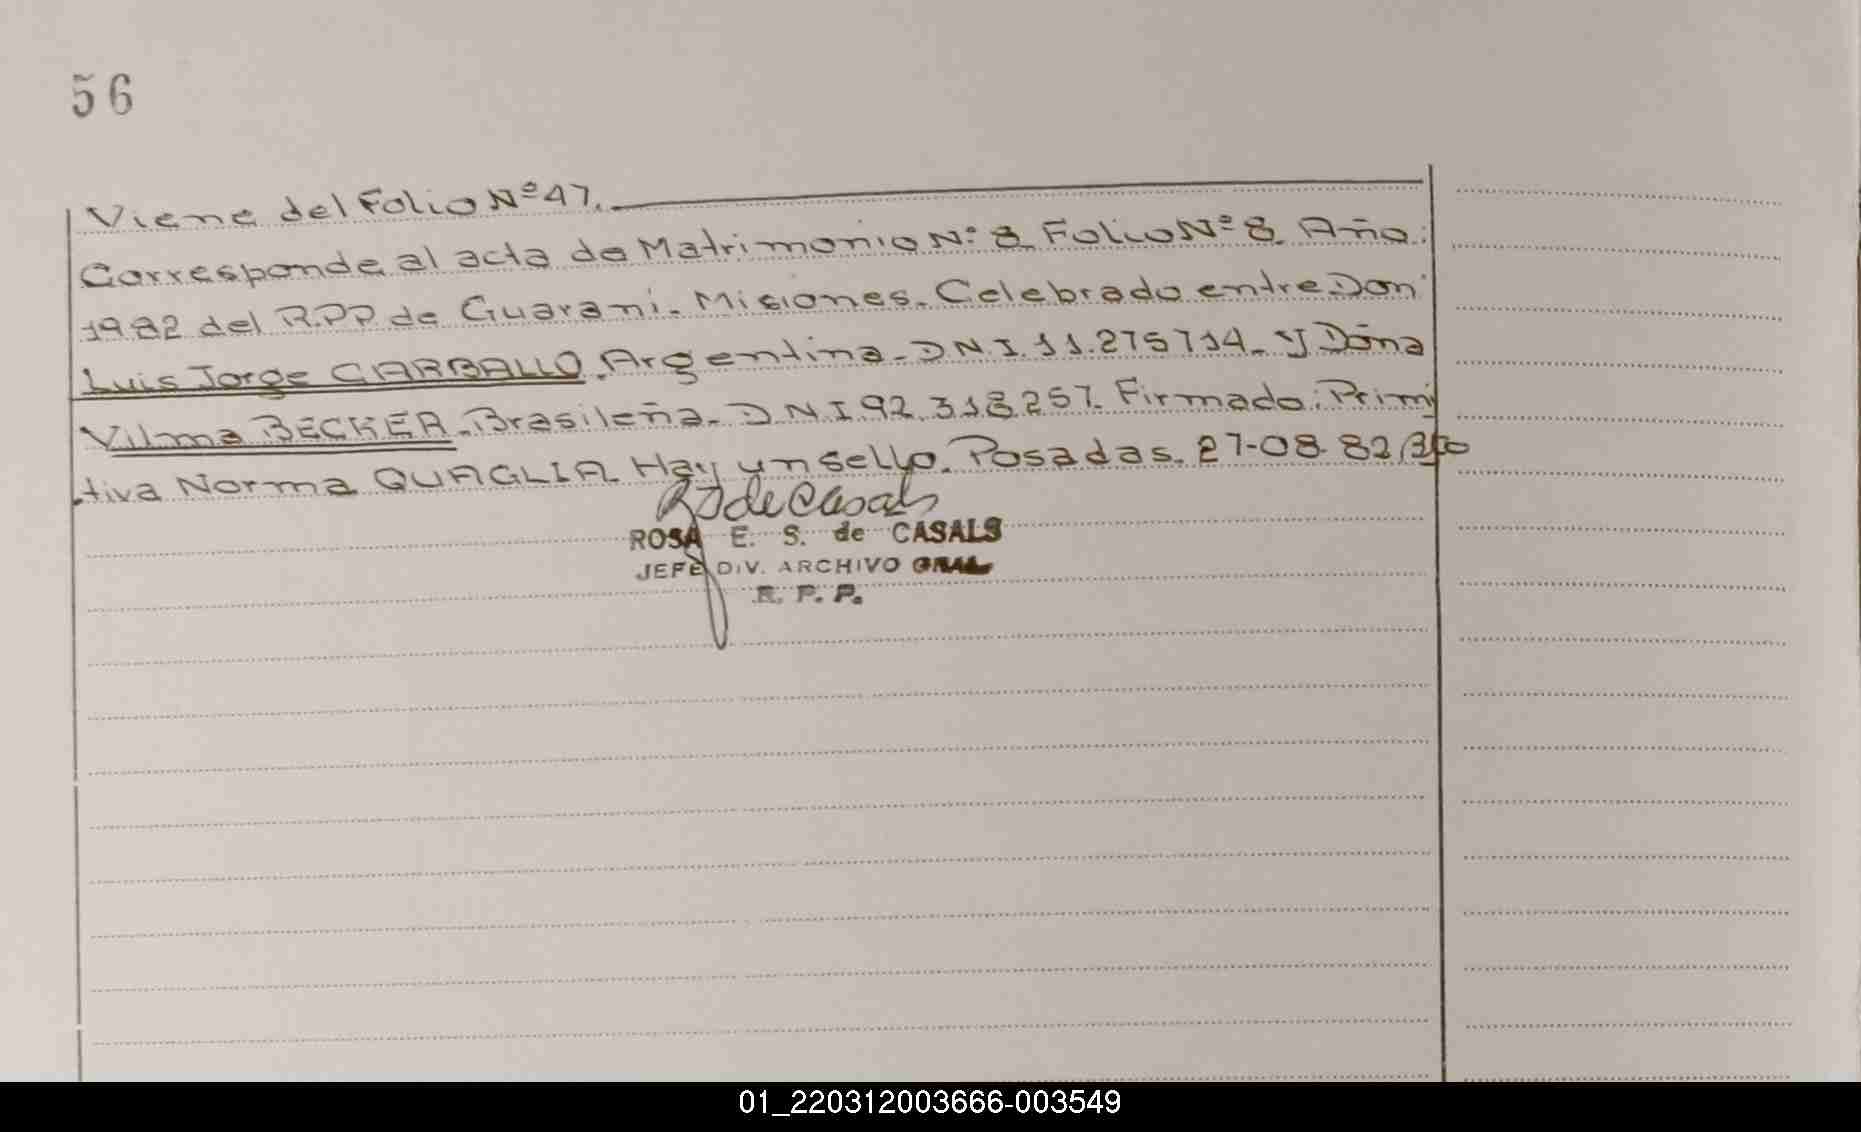 56
Viene del Folio Nº 47.
Corresponde al acta de Matrimonio Nº 8 Folio Nº 8. Año:
1982 del R.P.P. de Guaraní. Misiones. Celebrado entre Don
Luis Jorge CARBALLO. Argentina. D.N.I. 11.275714. y Doña
Vilma BECKER. Brasileña. D.N.I 92.318257. Firmado: Primi
tiva Norma QUAGLIA. Hay un sello. Posadas. 27-08-82
R S de Casals
ROSA E. S. de CASALS
JEFE DIV. ARCHIVO GRAL
R. P. P.
01_220312003666-003549